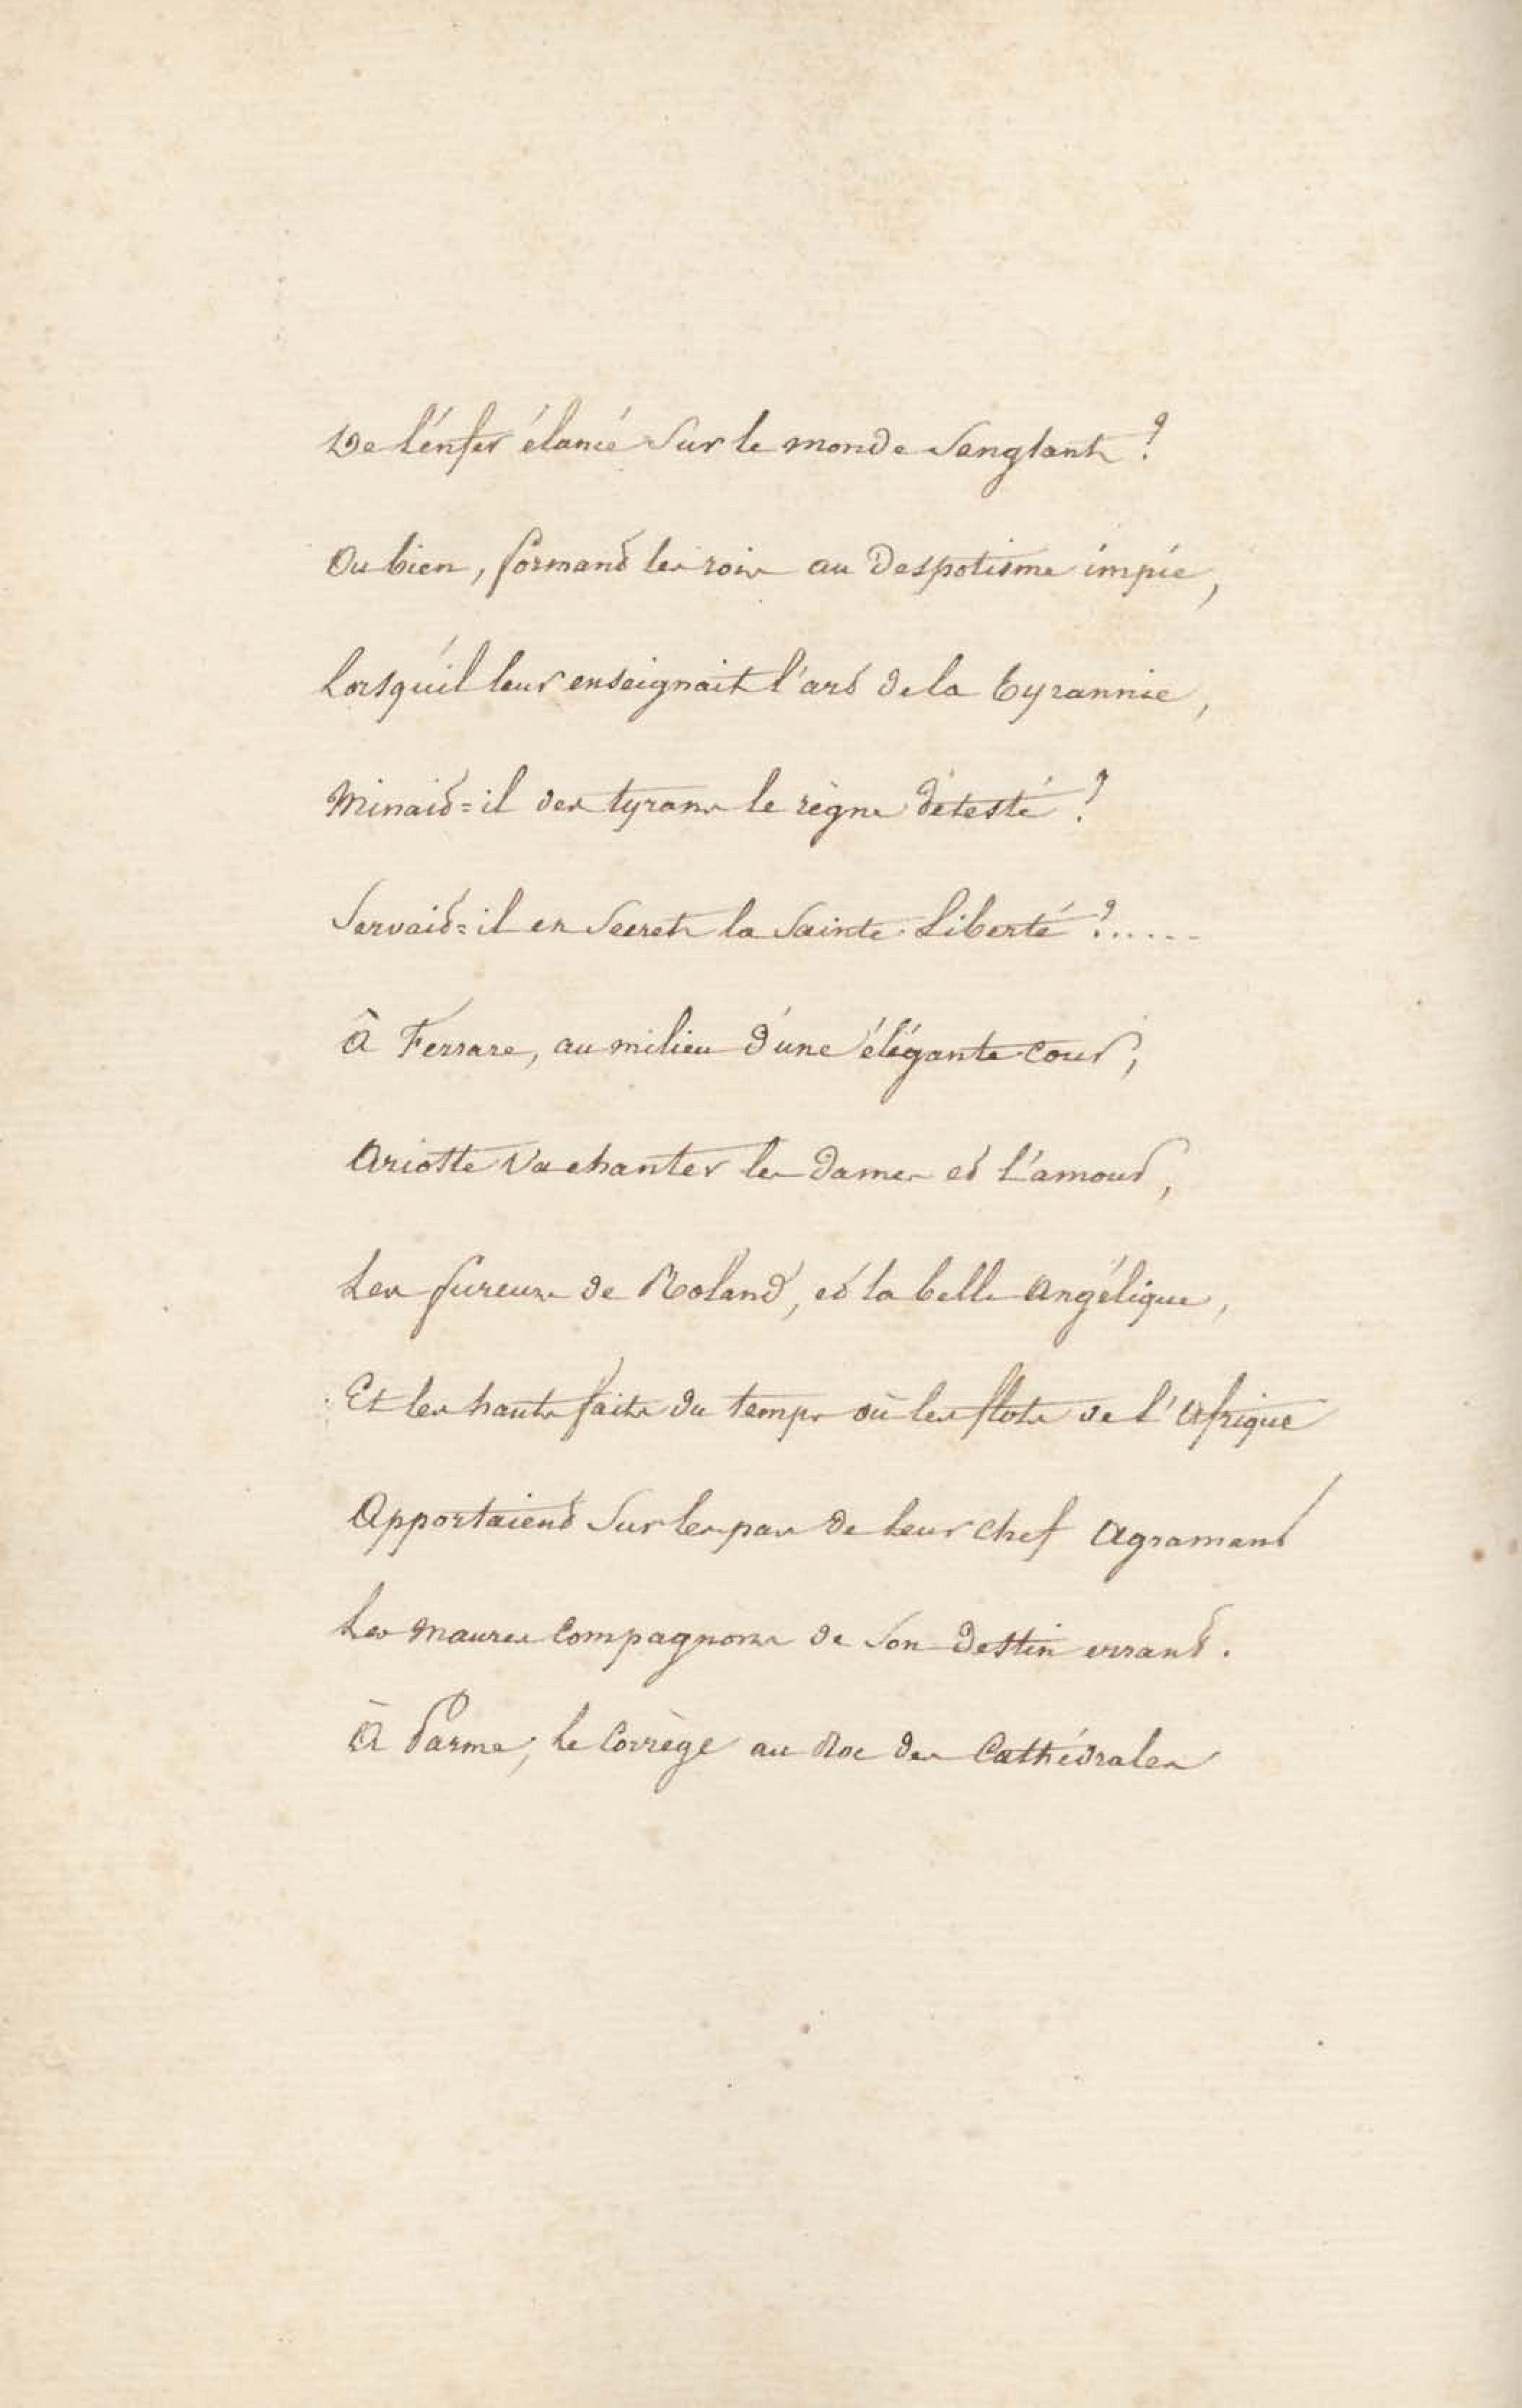 De l'enfer élancé sur le monde sanglant ?
Ou bien, formant les rois au despotisme impie,
Lorsqu'il leur enseignait l'art de la tyrannie,
Minait=il des tyrans le règne détesté ?
Servait=il en secret la sainte Liberté ?......
À Ferrare, au milieu d'une élégante cour,
Ariotte va chanter les dames et l'amour,
Les fureurs de Roland, et la belle Angélique,
Et les hauts faits du temps où les flots de l'Afrique
Apportaient sur les pas de leur chef Agramant
Les maures compagnons de son destin errant.
À Parme, le Corrège au des Cathédrales